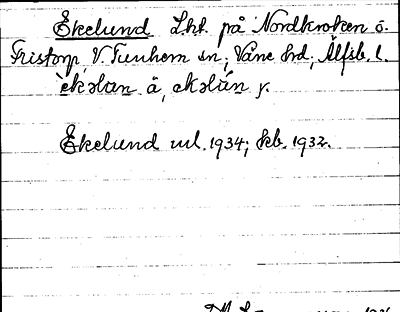 Ekelund Lht. på Nordkroken ö.
Fristorp, V. Tunhem sn; Väne hrd; Älfsb. l.
èkɔlan ä, ekɔlán y.
Ekelund ul. 1934; kb. 1932.